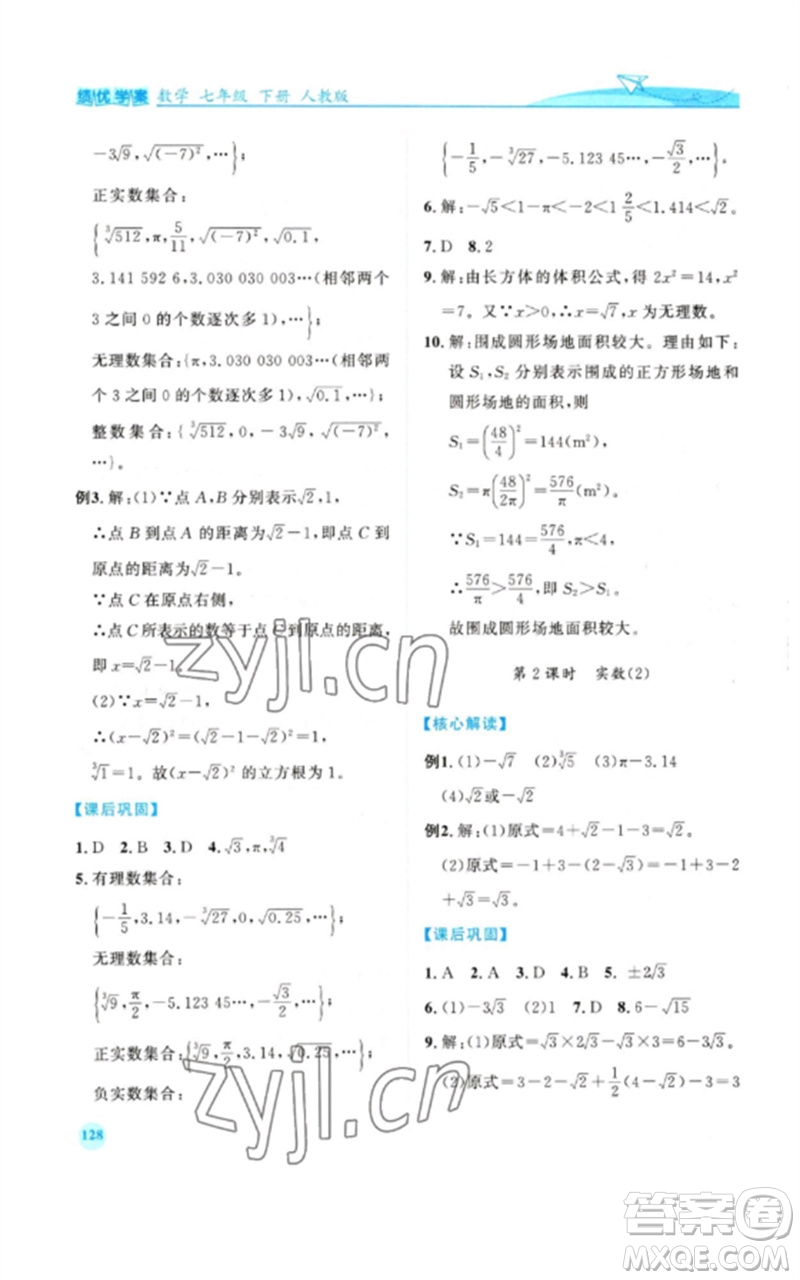 绩优学案 数学 七年级 下册 人教版
-3√9,√(-7)²,…};
正实数集合:
{∛512,π,5/11,√(-7)²,√0.1,
3.141 592 6,3.030 030 003…(相邻两个
3之间0的个数逐次多1),…};
无理数集合:{π,3.030 030 003…(相邻两
个3之间0的个数逐次多1),…};
整数集合:{∛512,0,-3√9,√(-7)²,
…}。
例3.解:(1)∵点A,B分别表示√2,1,
∴点B到点A的距离为√2-1,即点C到
原点的距离为√2-1。
∵点C在原点右侧,
∴点C所表示的数等于点C到原点的距离,
即x=√2-1。
(2)∵x=√2-1,
∴(x-√2)²=(√2-1-√2)²=1,
∛1=1。故(x-√2)²的立方根为1。
【课后巩固】
1.D 2.B 3.D 4.√3,π,∛4
5.有理数集合:
{-1/5,3.14,-∛27,0,√0.25,…};
无理数集合:
{∛9,π/2,-5.123 45…,-√3/2,…};
正实数集合:{∛9,π/2,3.14,√0.25,…};
负实数集合:
128
{-1/5,-∛27,-5.123 45…,-√3/2,…}。
6.解:-√5<1-π<-2<1 2/5<1.414<√2。
7.D 8.2
9.解:由长方体的体积公式,得2x²=14,x²
=7。又∵x>0,∴x=√7,x为无理数。
10.解:围成圆形场地面积较大。理由如下:
设S₁,S₂分别表示围成的正方形场地和
圆形场地的面积,则
S₁=(48/4)²=144(m²),
S₂=π(48/2π)²=576/π(m²)。
∵S₁=144=576/4,π<4,
∴576/π>576/4,即S₂>S₁。
故围成圆形场地面积较大。
第2课时 实数(2)
【核心解读】
例1.(1)-√7 (2)∛5 (3)π-3.14
(4)√2或-√2
例2.解:(1)原式=4+√2-1-3=√2。
(2)原式=-1+3-(2-√3)=-1+3-2
+√3=√3。
【课后巩固】
1.A 2.A 3.D 4.B 5.±2√3
6.(1)-3√3 (2)1 7.D 8.6-√15
9.解:(1)原式=√3×2√3-√3×√3=6-3=3。
(2)原式=3-2-√2+1/2(4-2)=1-√2+1
zyjl.cn
zyjl.cn
答案圈
MXQE.COM